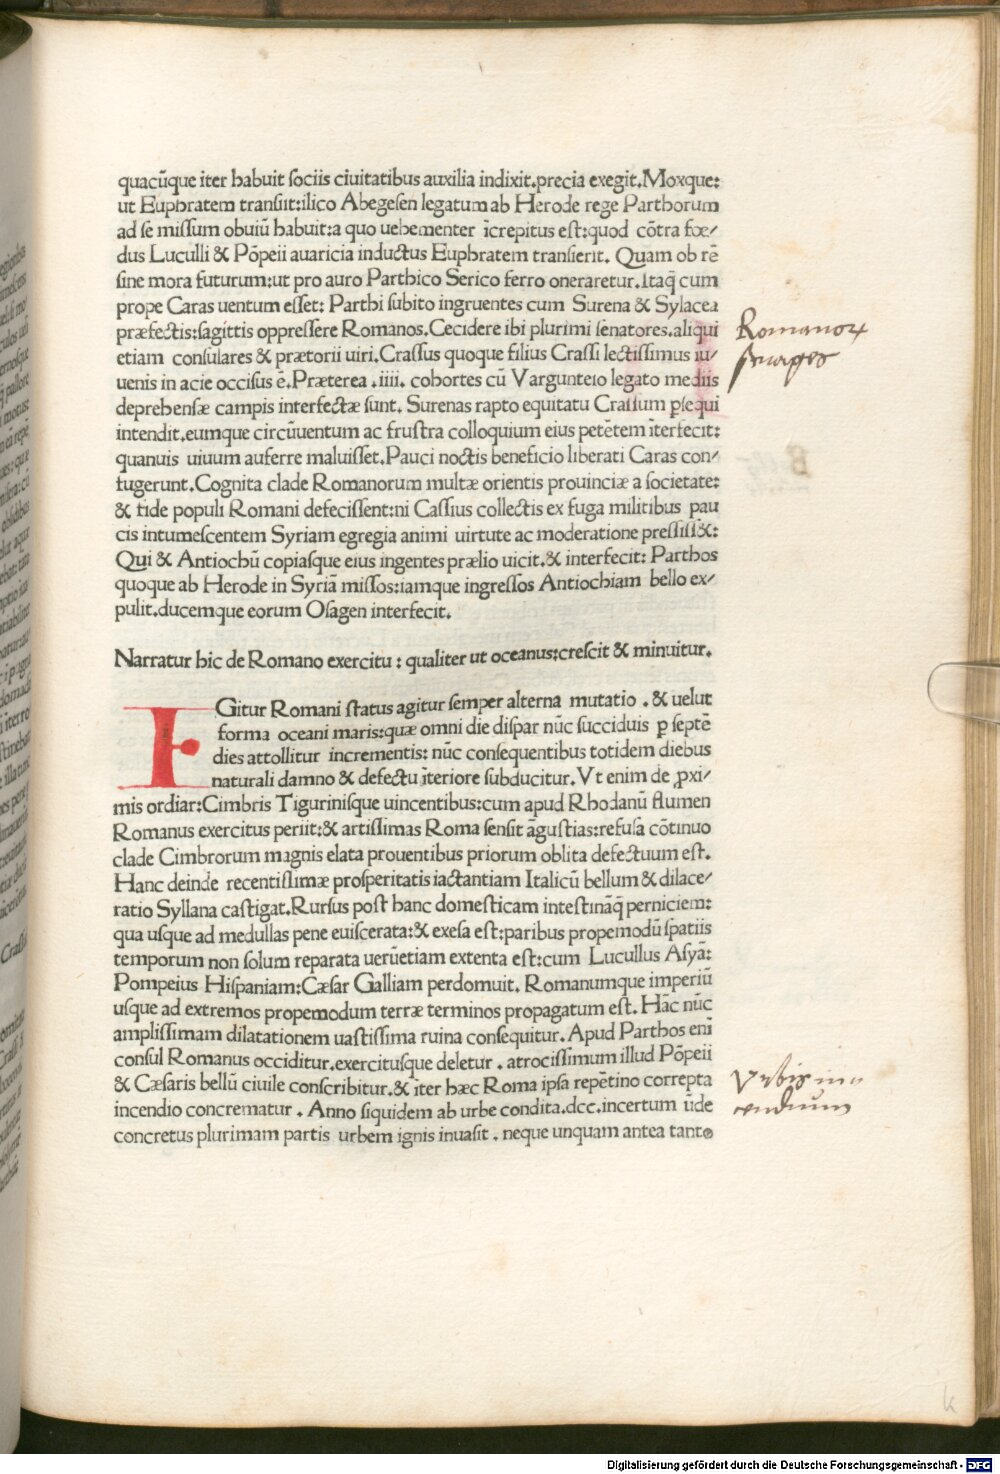 quacūque iter habuit ſociis ciuitatibus auxilia indixit.precia exegit.Moxque:
ut Euphratem tranſiit:ilico Abegeſen legatum ab Herode rege Parthorum
ad ſe miſſum obuiū habuit:a quo uehementer īcrepitus eſt:quod cōtra foe/
dus Luculli & Pōpeii auaricia inductus Euphratem tranſierit. Quam ob rē
ſine mora futurum:ut pro auro Parthico Serico ferro oneraretur.Itaq̄ cum
prope Caras uentum eſſet: Parthi ſubito ingruentes cum Surena & Sylacea
præfectis:ſagittis oppreſſere Romanos.Cecidere ibi plurimi ſenatores.aliqui
etiam conſulares & prætorii uiri.Craſſus quoque filius Craſſi lectiſſimus iu/
uenis in acie occiſus ē.Præterea .iiii. cohortes cū Vargunteio legato mediis
deprehenſæ campis interfectæ ſunt. Surenas rapto equitatu Craſſum ꝑſequi
intendit.eumque circūuentum ac fruſtra colloquium eius petētem īterfecit:
quanuis uiuum auferre maluiſſet.Pauci noctis beneficio liberati Caras con/
fugerunt.Cognita clade Romanorum multæ orientis prouinciæ a ſocietate:
& fide populi Romani defeciſſent:ni Caſſius collectis ex fuga militibus pau
cis intumeſcentem Syriam egregia animi uirtute ac moderatione preſſiſſ&:
Qui & Antiochū copiaſque eius ingentes prælio uicit.& interfecit: Parthos
quoque ab Herode in Syriā miſſos:iamque ingreſſos Antiochiam bello ex/
pulit.ducemque eorum Oſagen interfecit.
Narratur hic de Romano exercitu : qualiter ut oceanus:creſcit & minuitur.
IGitur Romani ſtatus agitur ſemper alterna mutatio . & uelut
forma oceani maris:quæ omni die diſpar nūc ſucciduis ꝑ ſeptē
dies attollitur incrementis: nūc conſequentibus totidem diebus
naturali damno & defectu īteriore ſubducitur.Vt enim de ꝓxi/
mis ordiar:Cimbris Tiguriniſque uincentibus:cum apud Rhodanū flumen
Romanus exercitus periit:& artiſſimas Roma ſenſit āguſtias:refuſa cōtinuo
clade Cimbrorum magnis elata prouentibus priorum oblita defectuum eſt.
Hanc deinde recentiſſimæ proſperitatis iactantiam Italicū bellum & dilace/
ratio Syllana caſtigat.Rurſus poſt hanc domeſticam inteſtināq̄ perniciem:
qua uſque ad medullas pene euiſcerata:& exeſa eſt:paribus propemodū ſpatiis
temporum non ſolum reparata uerūetiam extenta eſt:cum Lucullus Aſyā:
Pompeius Hiſpaniam:Cæſar Galliam perdomuit. Romanumque imperiū
uſque ad extremos propemodum terræ terminos propagatum eſt. Hāc nūc
ampliſſimam dilatationem uaſtiſſima ruina conſequitur. Apud Parthos eni
conſul Romanus occiditur.exercituſque deletur . atrociſſimum illud Pōpeii
& Cæſaris bellū ciuile conſcribitur.& īter hæc Roma ipſa repētino correpta
incendio concrematur . Anno ſiquidem ab urbe condita.dcc.incertum ūde
concretus plurimam partis urbem ignis inuaſit . neque unquam antea tanto
Romanoꝝ
ſtrages
Vrbis in
cendium
k
Digitalisierung gefördert durch die Deutsche Forschungsgemeinschaft - DFG